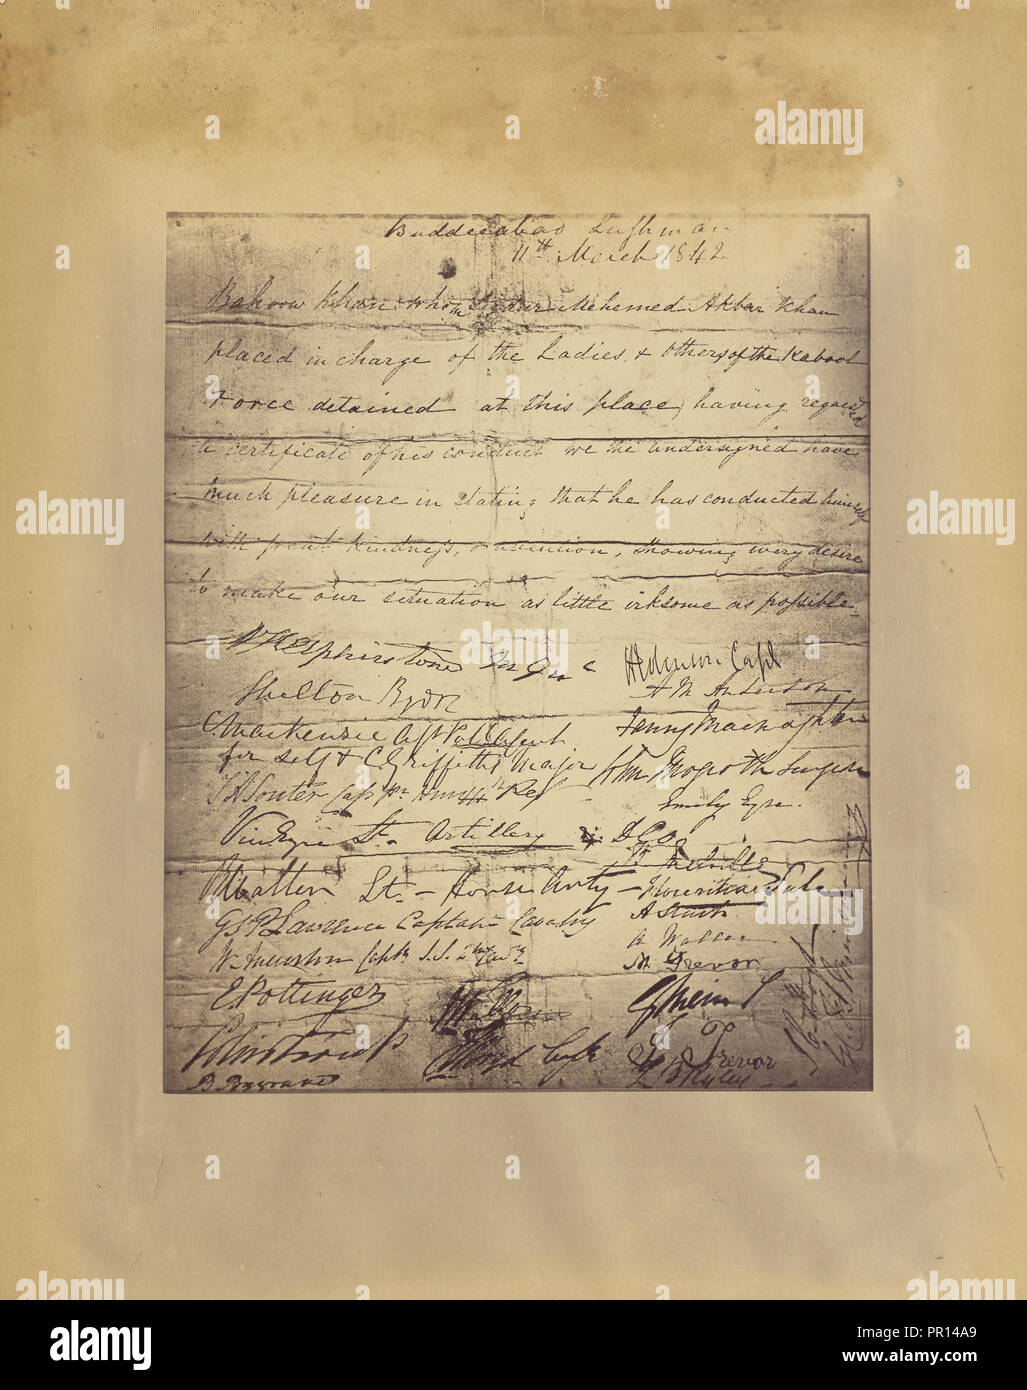 Buddeeabad Lughman
11th March 1842
Bahoow Khan whom Sirdar Mehemed Akbar Khan
placed in charge of the Ladies, & others of the Kabool
Force detained at this place, having requested
a certificate of his conduct we the undersigned have
much pleasure in stating that he has conducted himself
with great kindness, & attention, showing every desire
to make our situation as little irksome as possible.
Elphinstone M Gn
Shelton Brigr
Mackenzie Capt Pol. Agent
for self & C Griffiths Major
Souter Capt 44th Regt
Vin Eyre Lt. Artillery & D C O
Waller Lt. - Horse Arty
G St P Lawrence Captain Cavalry
W Anderson Capt S.S. 2nd Cavy
E Pottinger
Johnson Capt
A M Anderson
Fanny Macnaghten
Wm Magrath Surgeon
Emily Eyre.
Melville
Florentia Sale
A Sturt
Waller
M Trevor
G Mein
Trevor
alamy
alamy stock photo
PR14A9
www.alamy.com